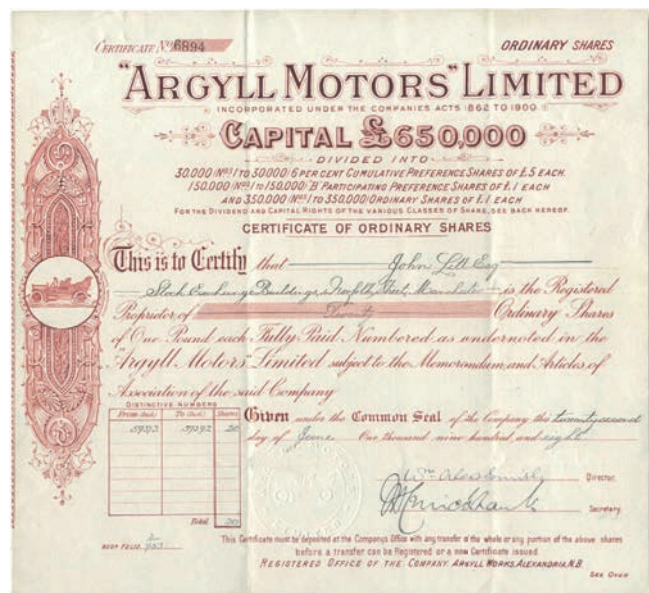 CERTIFICATE No 6894
ORDINARY SHARES
"ARGYLL MOTORS" LIMITED
INCORPORATED UNDER THE COMPANIES ACTS 1862 TO 1900
CAPITAL £650,000
DIVIDED INTO
30,000 (Nos 1 TO 30000) 6 PER CENT CUMULATIVE PREFERENCE SHARES OF £5 EACH.
150,000 (Nos 1 to 150,000) 'B' PARTICIPATING PREFERENCE SHARES OF £1 EACH
AND 350,000 (Nos 1 TO 350,000) ORDINARY SHARES OF £1 EACH
FOR THE DIVIDEND AND CAPITAL RIGHTS OF THE VARIOUS CLASSES OF SHARE, SEE BACK HEREOF.
CERTIFICATE OF ORDINARY SHARES
This is to Certify that John Lill Esq
Stock Exchange Buildings, Norfolk Street, Manchester is the Registered
Proprietor of Twenty Ordinary Shares
of One Pound each Fully Paid Numbered as undernoted in the
"Argyll Motors" Limited subject to the Memorandum and Articles of
Association of the said Company
DISTINCTIVE NUMBERS
From (Incl.) To (Incl.) Shares
20
Total 20
Given under the Common Seal of the Company this twenty second
day of June One thousand nine hundred and eight
Director.
Secretary.
This Certificate must be deposited at the Company's Office with any transfer of the whole or any portion of the above shares
before a transfer can be Registered or a new Certificate issued.
REGISTERED OFFICE OF THE COMPANY. ARGYLL WORKS, ALEXANDRIA, N.B.
SEE OVER